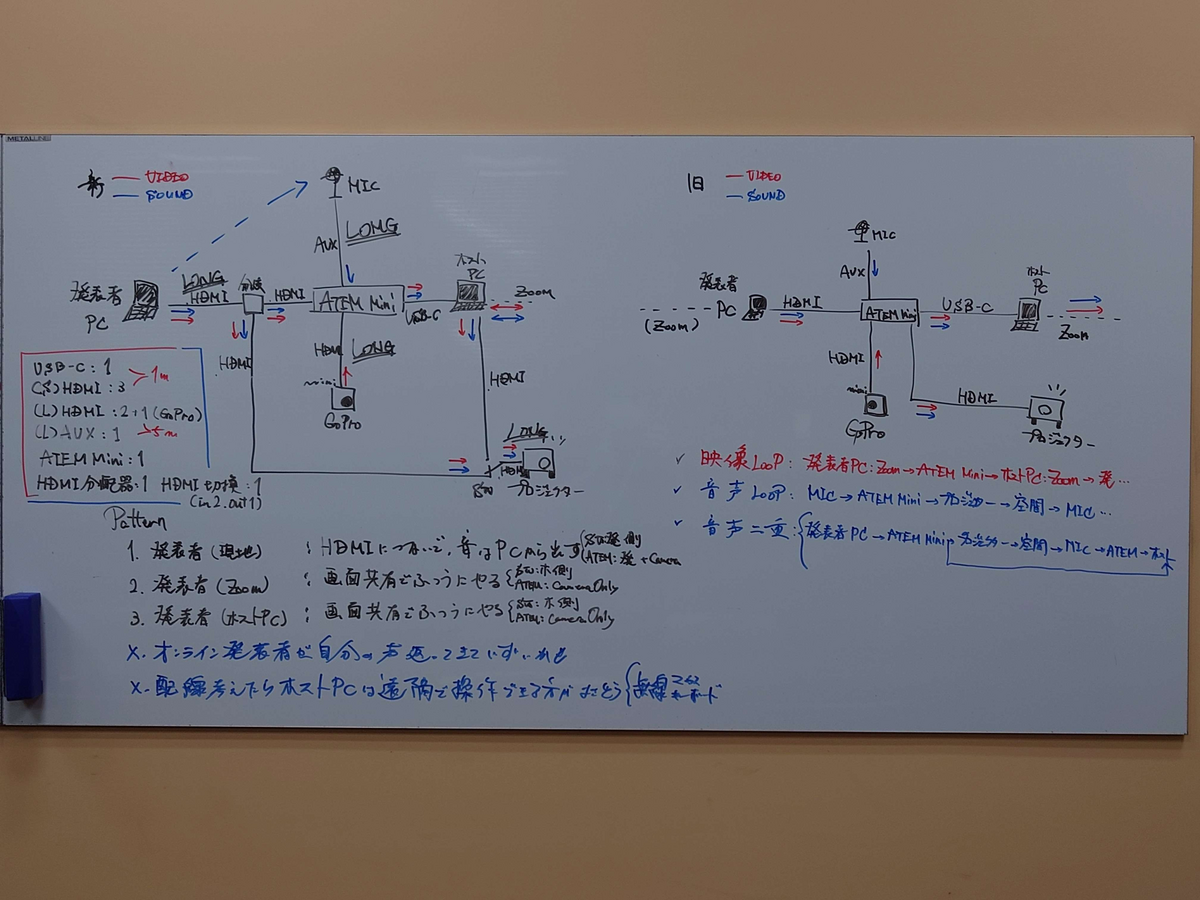 METALLINE
新 VIDEO
SOUND
MIC
AUX LONG
発表者 PC
LONG
HDMI
分波
HDMI
ATEM Mini
USB-C
ホスト PC
Zoom
HDMI
HDMI LONG
mini
GoPro
HDMI
LONG
HDMI
プロジェクター
USB-C : 1
(S) HDMI : 3
>1m
(L) HDMI : 2+1 (GoPro)
(L) AUX : 1 >5m
ATEM Mini : 1
HDMI分配器 : 1 HDMI切換 : 1
(in2.out1)
Pattern
1. 発表者 (現地) : HDMIにつないで、音はPCから出す
ATEM: 発 + Camera
2. 発表者 (Zoom) : 画面共有でふつうにやる
ATEM: Camera Only
3. 発表者 (ホストPC) : 画面共有でふつうにやる
ATEM: Camera Only
X. オンライン発表者が自分の声返ってきて
X. 配線考えたらホストPCは遠隔で操作できる方が
無線 マウス キーボード
旧 VIDEO
SOUND
MIC
AUX
発表者 PC
(Zoom)
HDMI
ATEM Mini
USB-C
ホスト PC
Zoom
HDMI
mini
GoPro
HDMI
プロジェクター
✓ 映像LOOP : 発表者PC:Zoom→ATEM Mini→ホストPC:Zoom→発…
✓ 音声LOOP : MIC→ATEM Mini→プロジェクター→空間→MIC…
✓ 音声二重 : 発表者PC→ATEM Mini→プロジェクター→空間→MIC→ATEM→ホスト